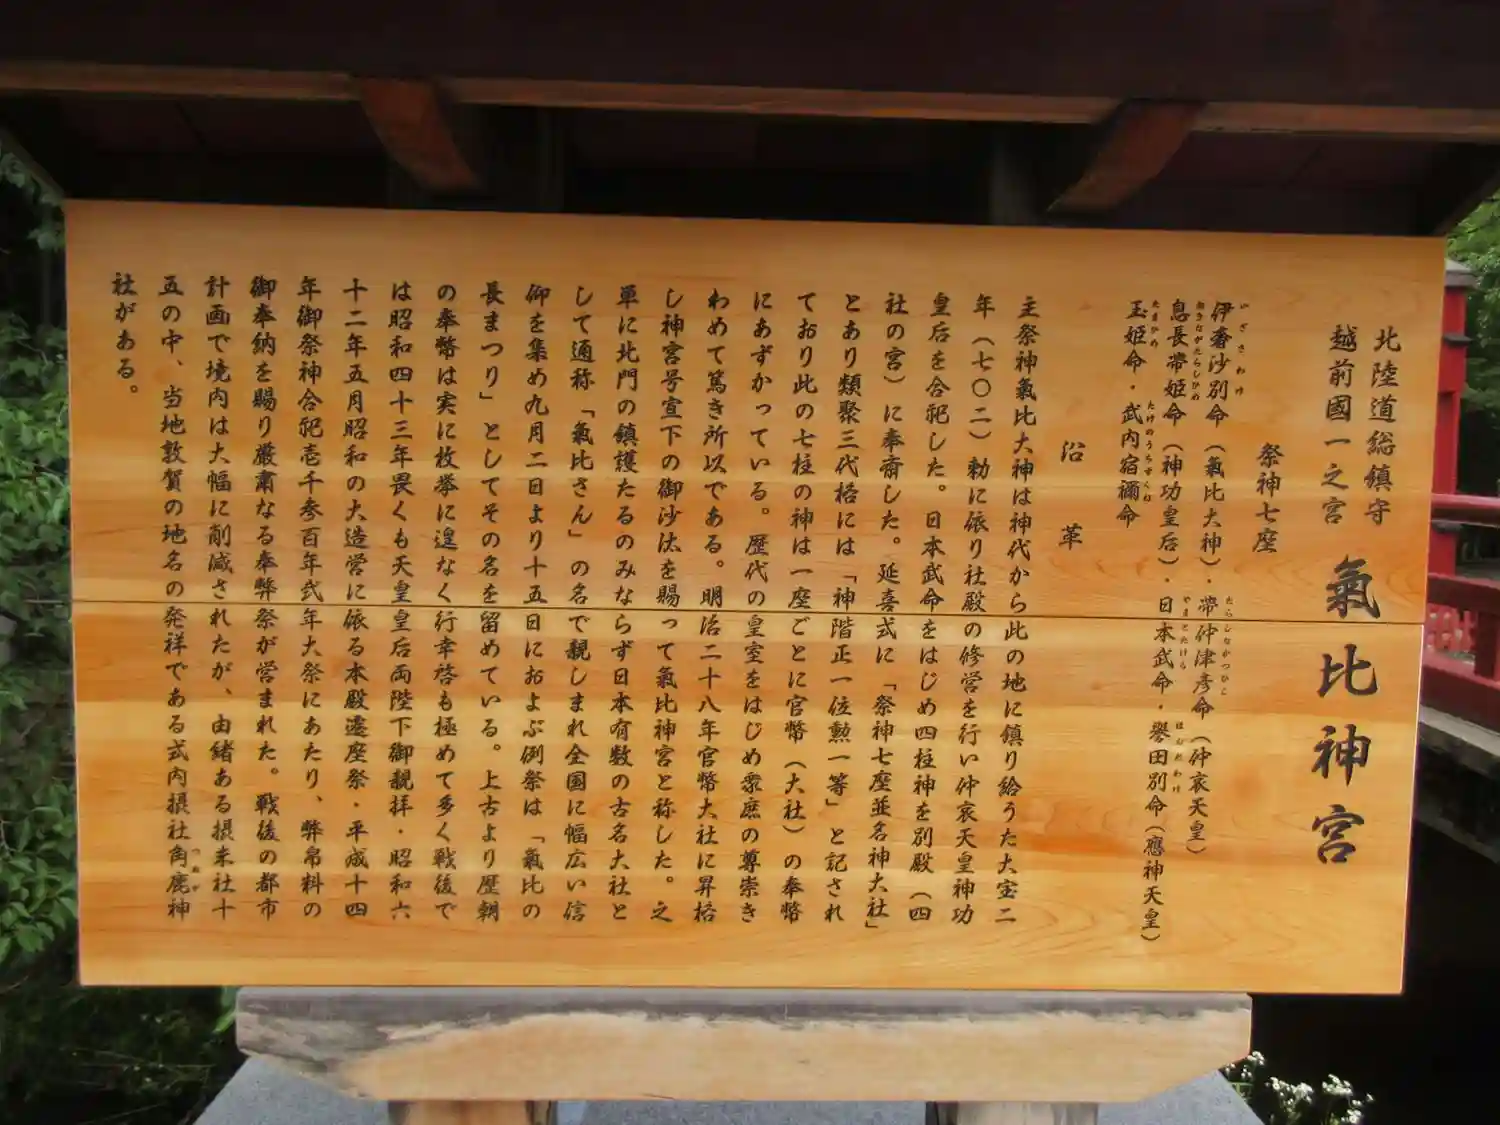 北陸道総鎮守
越前國一之宮
氣比神宮
祭神七座
伊奢沙別命（氣比大神）・帶仲津彦命（仲哀天皇）
いざさわけ
たらしなかつひこ
息長帶姫命（神功皇后）・日本武命・譽田別命（應神天皇）
おきながたらしひめ
やまとたける
ほむたわけ
玉姫命・武内宿禰命
たまひめ
たけのうちすくね
沿革
主祭神氣比大神は神代から此の地に鎮り給うた大宝二
年（七〇二）勅に依り社殿の修営を行い仲哀天皇神功
皇后を合祀した。日本武命をはじめ四柱神を別殿（四
社の宮）に奉斎した。延喜式に「祭神七座並名神大社」
とあり類聚三代格には「神階正一位勲一等」と記され
ており此の七柱の神は一座ごとに官幣（大社）の奉幣
にあずかっている。歴代の皇室をはじめ衆庶の尊崇き
わめて篤き所以である。明治二十八年官幣大社に昇格
し神宮号宣下の御沙汰を賜って氣比神宮と称した。之
単に北門の鎮護たるのみならず日本有数の古名大社と
して通称「氣比さん」の名で親しまれ全国に幅広い信
仰を集め九月二日より十五日におよぶ例祭は「氣比の
長まつり」としてその名を留めている。上古より歴朝
の奉幣は実に枚挙に遑なく行幸啓も極めて多く戦後で
は昭和四十三年畏くも天皇皇后両陛下御親拝・昭和六
十二年五月昭和の大造営に依る本殿遷座祭・平成十四
年御祭神合祀壱千参百年弐年大祭にあたり、弊帛料の
御奉納を賜り厳粛なる奉弊祭が営まれた。戦後の都市
計画で境内は大幅に削減されたが、由緒ある摂末社十
五の中、当地敦賀の地名の発祥である式内摂社角鹿神
つぬが
社がある。